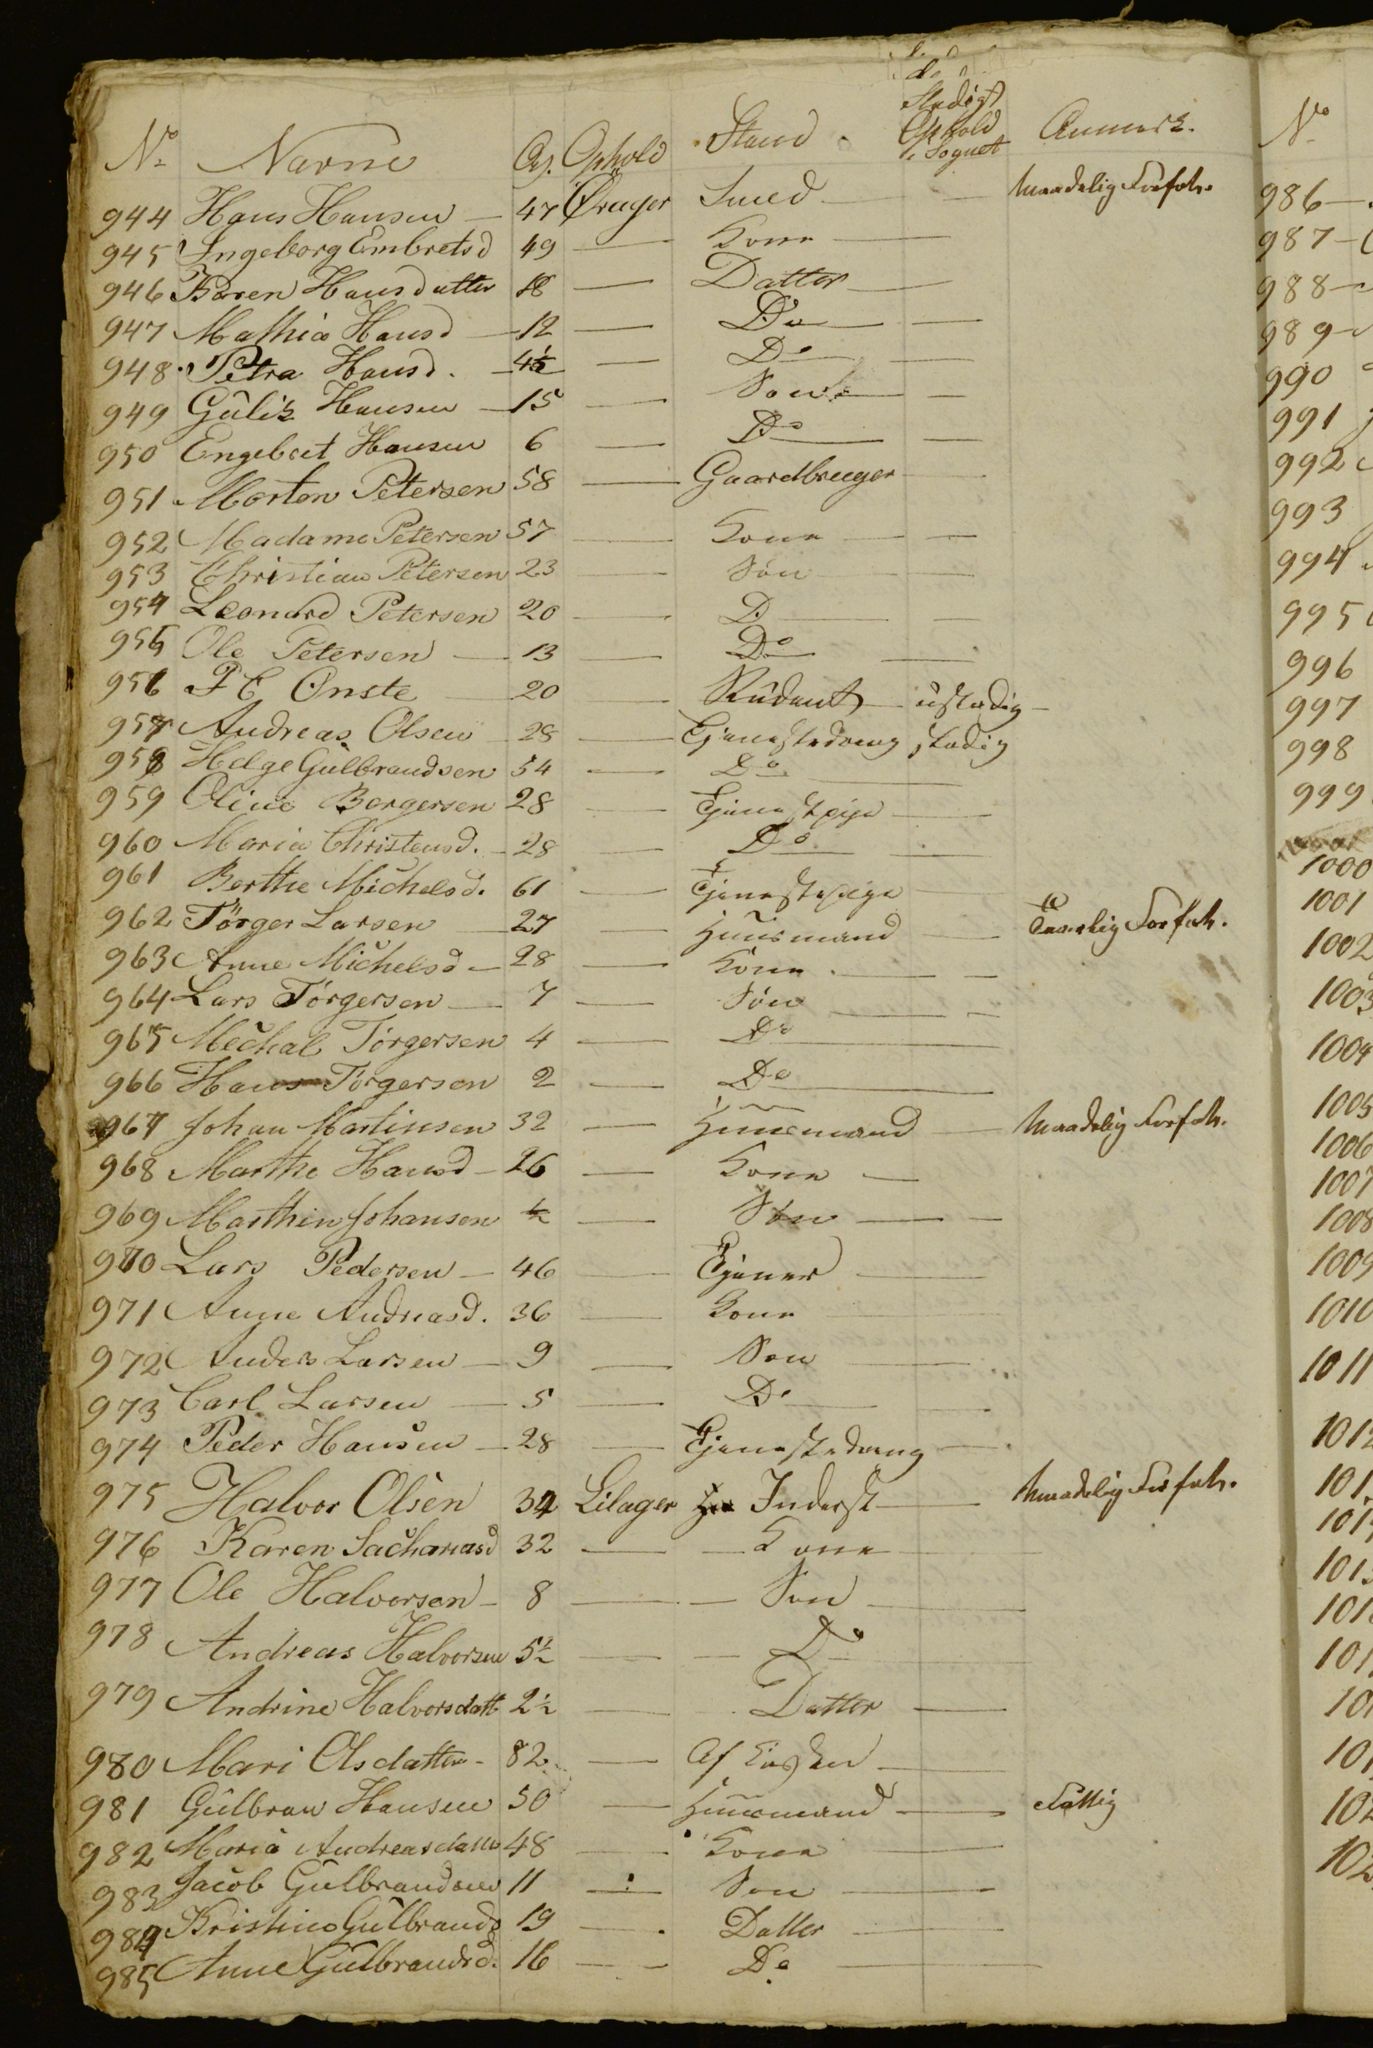 No Navne Al. Ophold Stand Stadigt Ophold i Sognet Anmærk.
944 Hans Hansen — 47 Øreager Smed — — Maadelig Forfatn.
945 Ingeborg Embretsd 49 — Kone —
946 Karen Hansdatter 18 — Datter —
947 Mathia Hansd — 12 — Do — —
948 Petra Hansd. — 4½ — Do — —
949 Gulik Hansen — 15 — Søn — —
950 Engebret Hansen 6 — Do — —
951 Morten Petersen 58 — Gaardbruger —
952 Madame Petersen 57 — Kone — —
953 Christian Petersen 23 — Søn — —
954 Leonard Petersen 20 — D — —
955 Ole Petersen — 13 — Do —
956 P E Onste — 20 — Student — ustadig —
957 Andreas Olsen — 28 — Tjenestedreng stadig
958 Helge Gulbrandsen 54 — Do —
959 Oline Borgersen 28 — Tjenestpige —
960 Maria Christensd. — 28 — Do — —
961 Berthe Michelsd. 61 — Tjenestepige —
962 Törger Larsen — 27 — Huusmand — Taalelig Forfatn.
963 Anne Michelsd — 28 — Kone — —
964 Lars Törgersen — 7 — Søn — —
965 Mechal Törgersen 4 — Do —
966 Hans Törgersen 2 — Do —
967 Johan Martinsen 32 — Huusmand — Maadelig Forfatn.
968 Marthe Hansd — 26 — Kone —
969 Marthin Johansen ½ — Søn — —
970 Lars Pedersen — 46 — Tjener —
971 Anne Andreasd. 36 — Kone —
972 Anders Larsen — 9 — Søn —
973 Carl Larsen — 5 — Do — —
974 Peder Hansen — 28 — Tjenestedreng —
975 Halvor Olsen 34 Lilager Inderst — Maadelig Forfatn.
976 Karen Sachariasd 32 — — Kone —
977 Ole Halvorsen — 8 — — Søn —
978 Andreas Halvorsen 5½ — — Do —
979 Andrine Halvorsdatt 2½ — Datter —
980 Mari Olsdatter — 82 — Af —
981 Gulbran Hansen 50 — Huusmand — — Fattig
982 Maria Andreasdatter 48 — Kone —
983 Jacob Gulbrandsen 11 — Søn — —
984 Kristine Gulbrands 19 — Datter —
985 Anne Gulbrandsd. 16 — — Do —
No
986 —
987 —
988 —
989
990
991
992
993
994
995
996
997
998
999
1000
1001
1002
1003
1004
1005
1006
1007
1008
1009
1010
1011